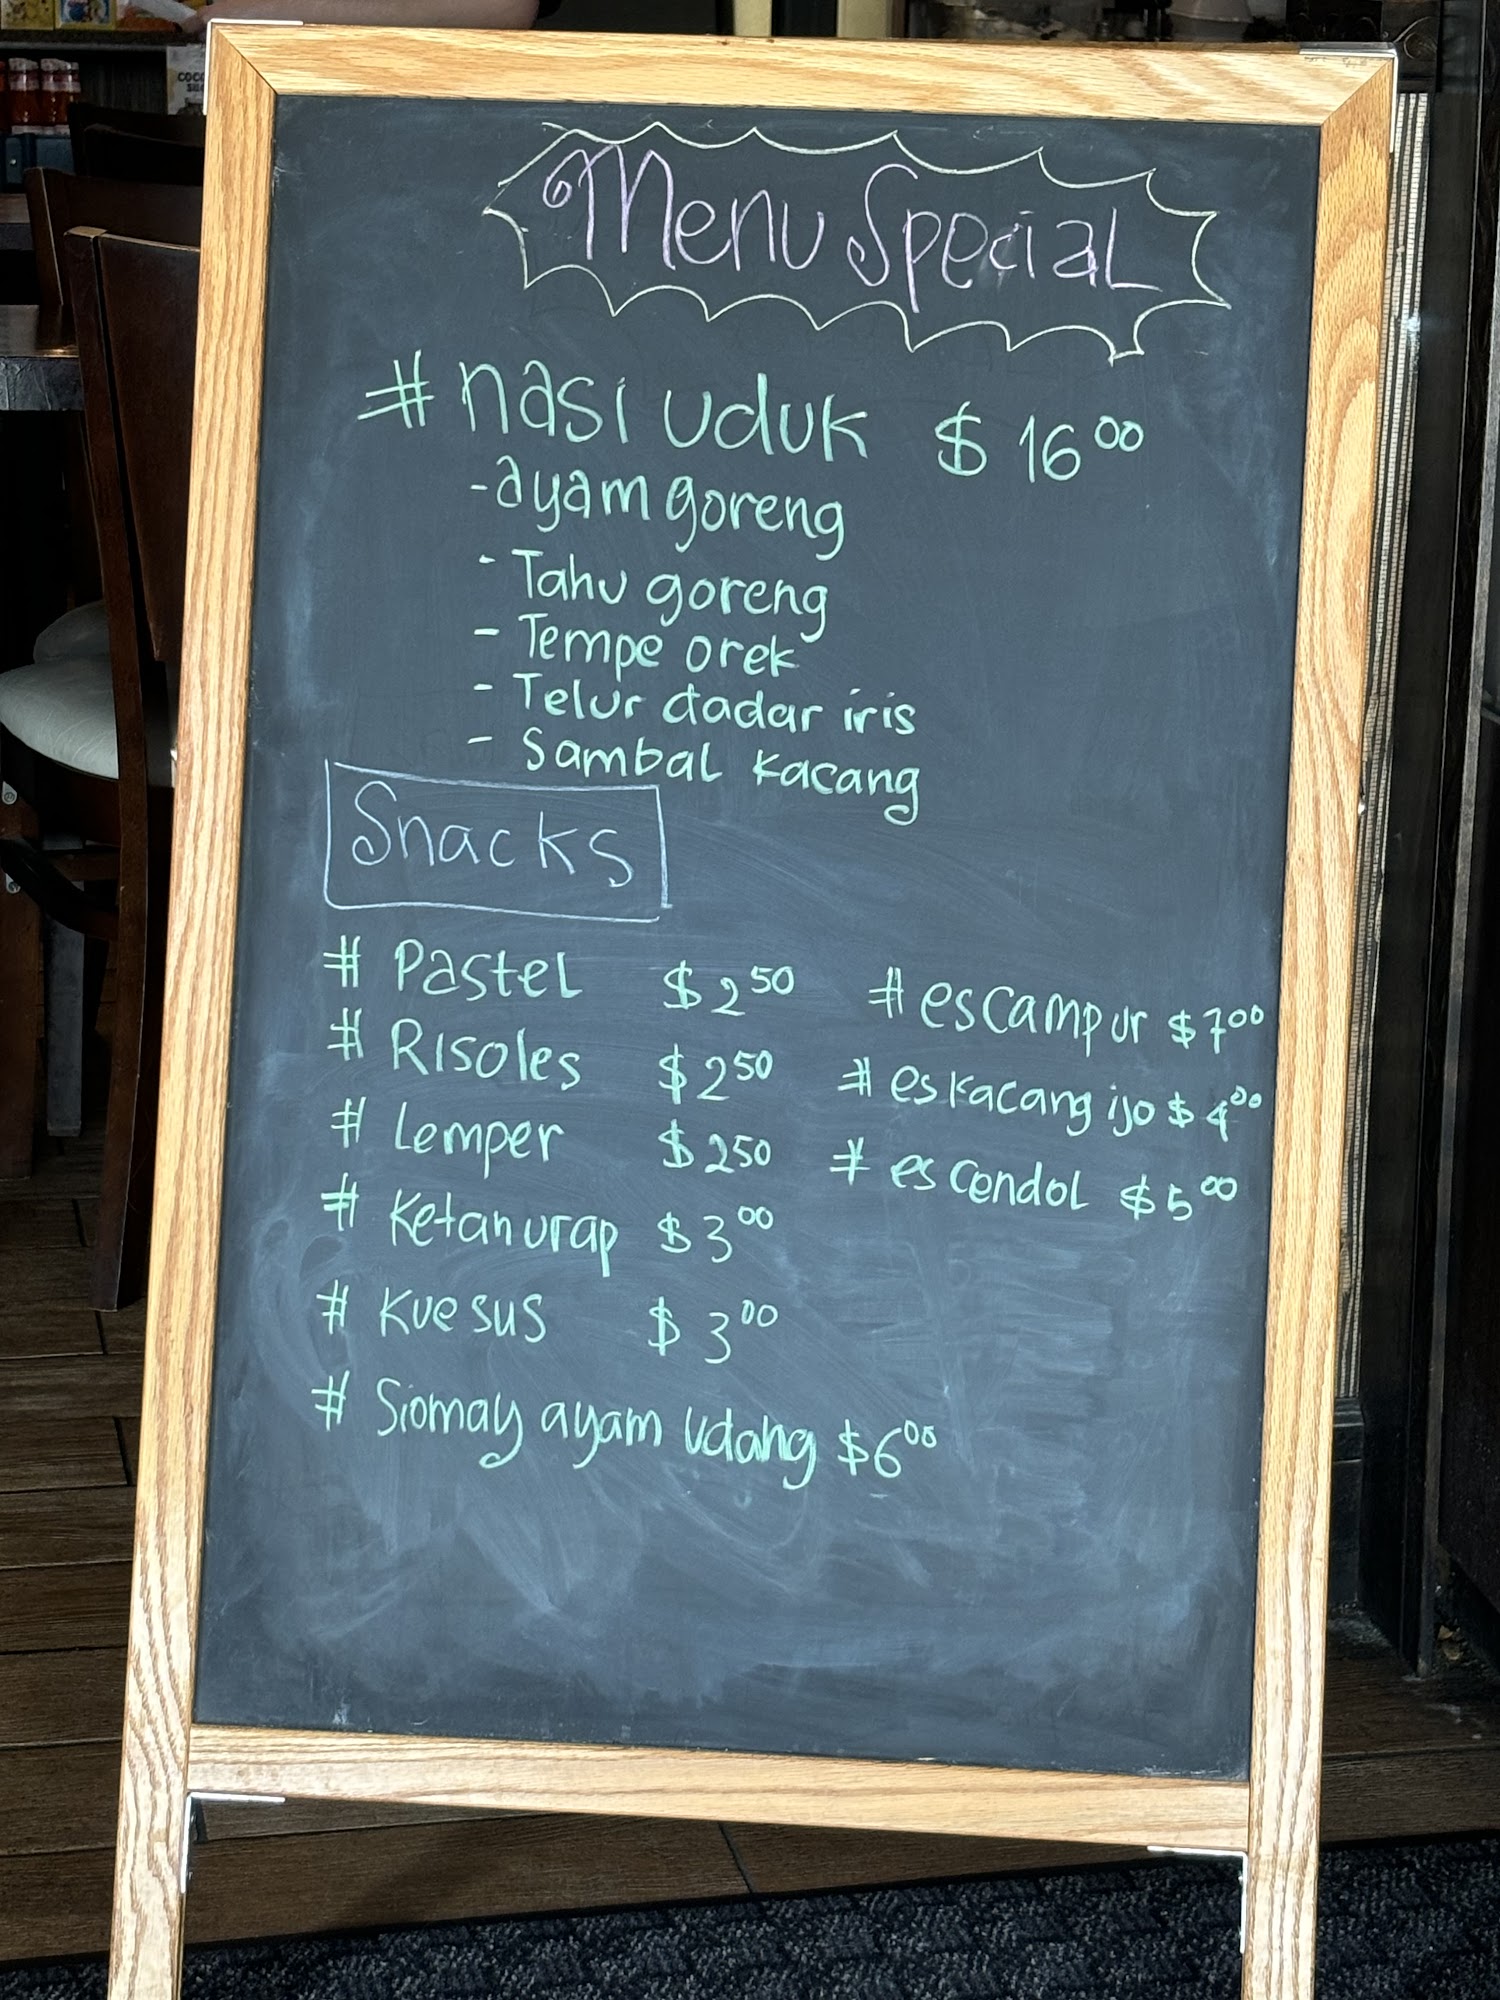 Menu Special
# nasi uduk $ 16⁰⁰
- ayam goreng
- Tahu goreng
- Tempe orek
- Telur dadar iris
- Sambal kacang
Snacks
# Pastel $2⁵⁰
# Risoles $2⁵⁰
# Lemper $250
# Ketan urap $3⁰⁰
# Kue sus $3⁰⁰
# Siomay ayam udang $6⁰⁰
# es campur $7⁰⁰
# es kacang ijo $4⁰⁰
# es cendol $5⁰⁰